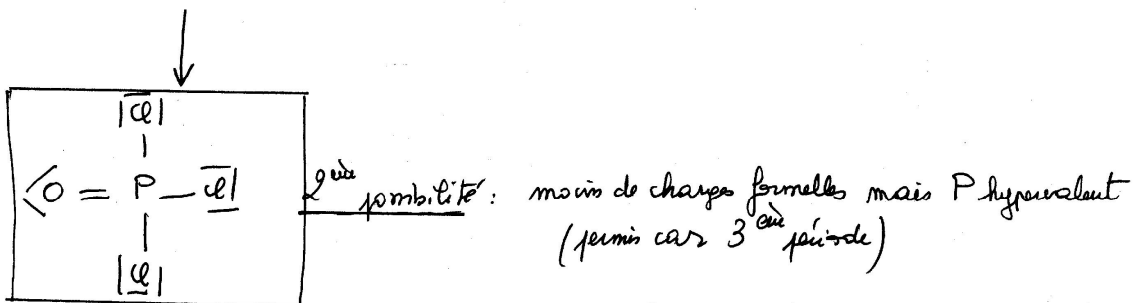 |Cl|
<O = P — Cl|
|Cl|
2ème possibilité : moins de charges formelles mais P hypervalent
(permis car 3ème période)